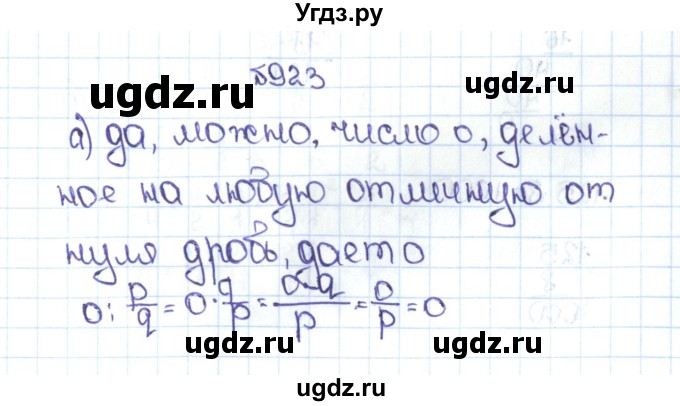 Угдз.ру
№923
ugdz.ru ugdz.ru
а) да, можно, число 0, делён-
ное на любую отличную от
нуля дробь, дает 0
0 : p/q = 0 · q/p = 0·q/p = 0/p = 0
ugdz.ru ugdz.ru
ugdz.ru